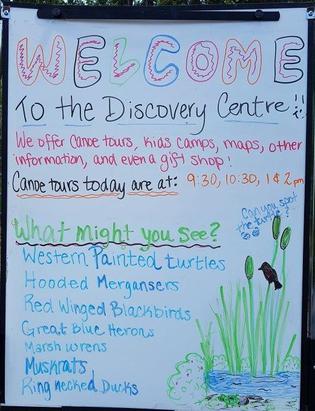 WELCOME
To the Discovery Centre!!
We offer Canoe tours, kids camps, maps, other
information, and even a gift shop!
Canoe tours today are at: 9:30, 10:30, 1 & 2 pm
What might you see?
Can you spot
the turtle?
Western Painted turtles
Hooded Mergansers
Red Winged Blackbirds
Great Blue Herons
Marsh wrens
Muskrats
Ring necked Ducks